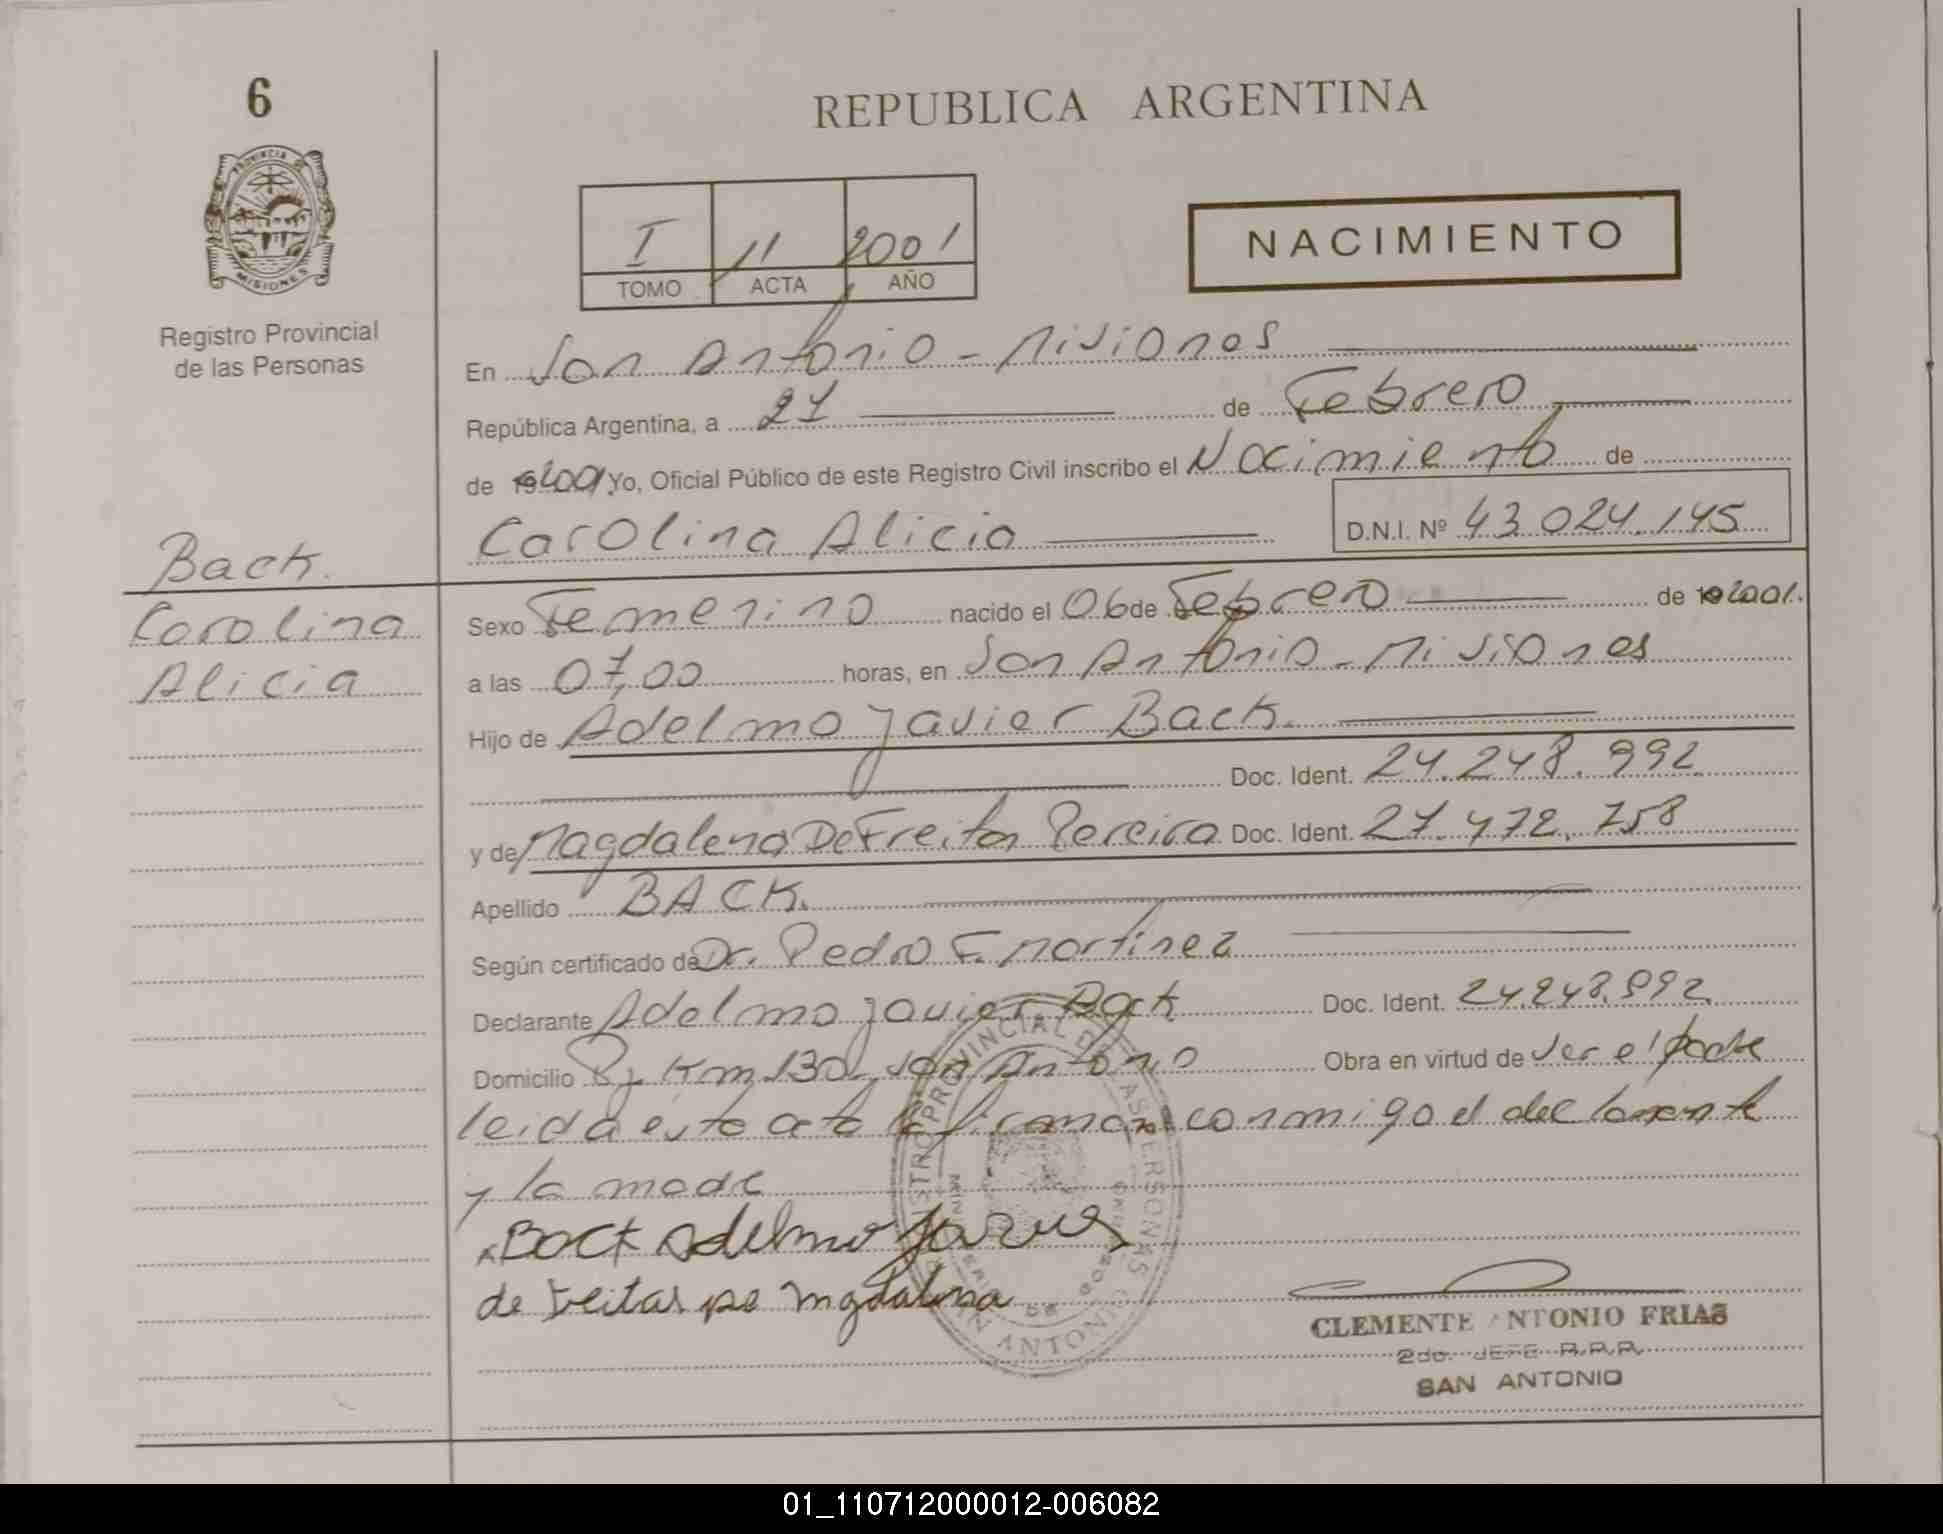 6
REPUBLICA ARGENTINA
PROVINCIA DE
MISIONES
Registro Provincial
de las Personas
I 11 2001
TOMO ACTA AÑO
NACIMIENTO
En San Antonio - Misiones
República Argentina, a 21 de Febrero
de 192001 Yo, Oficial Público de este Registro Civil inscribo el Nacimiento de
Carolina Alicia D.N.I. Nº 43.024.145
Back.
Carolina
Alicia
Sexo Femenino nacido el 06 de Febrero de 192001.
a las 07,00 horas, en San Antonio - Misiones
Hijo de Adelmo Javier Back.
Doc. Ident. 24.248.992
y de Magdalena De Freitas Pereira Doc. Ident. 27.472.758
Apellido BACK.
Según certificado de Dr. Pedro F. Martinez
Declarante Adelmo Javier Back Doc. Ident. 24.248.992
Domicilio Km 130 San Antonio Obra en virtud de ser el padre
leida esta acta la firman conmigo el declarante
y la madre
Back Adelmo Javier
de Freitas pe Magdalena
REGISTRO PROVINCIAL DE LAS PERSONAS
SAN ANTONIO
CLEMENTE ANTONIO FRIAS
2do. JEFE R.P.P.
SAN ANTONIO
01_110712000012-006082